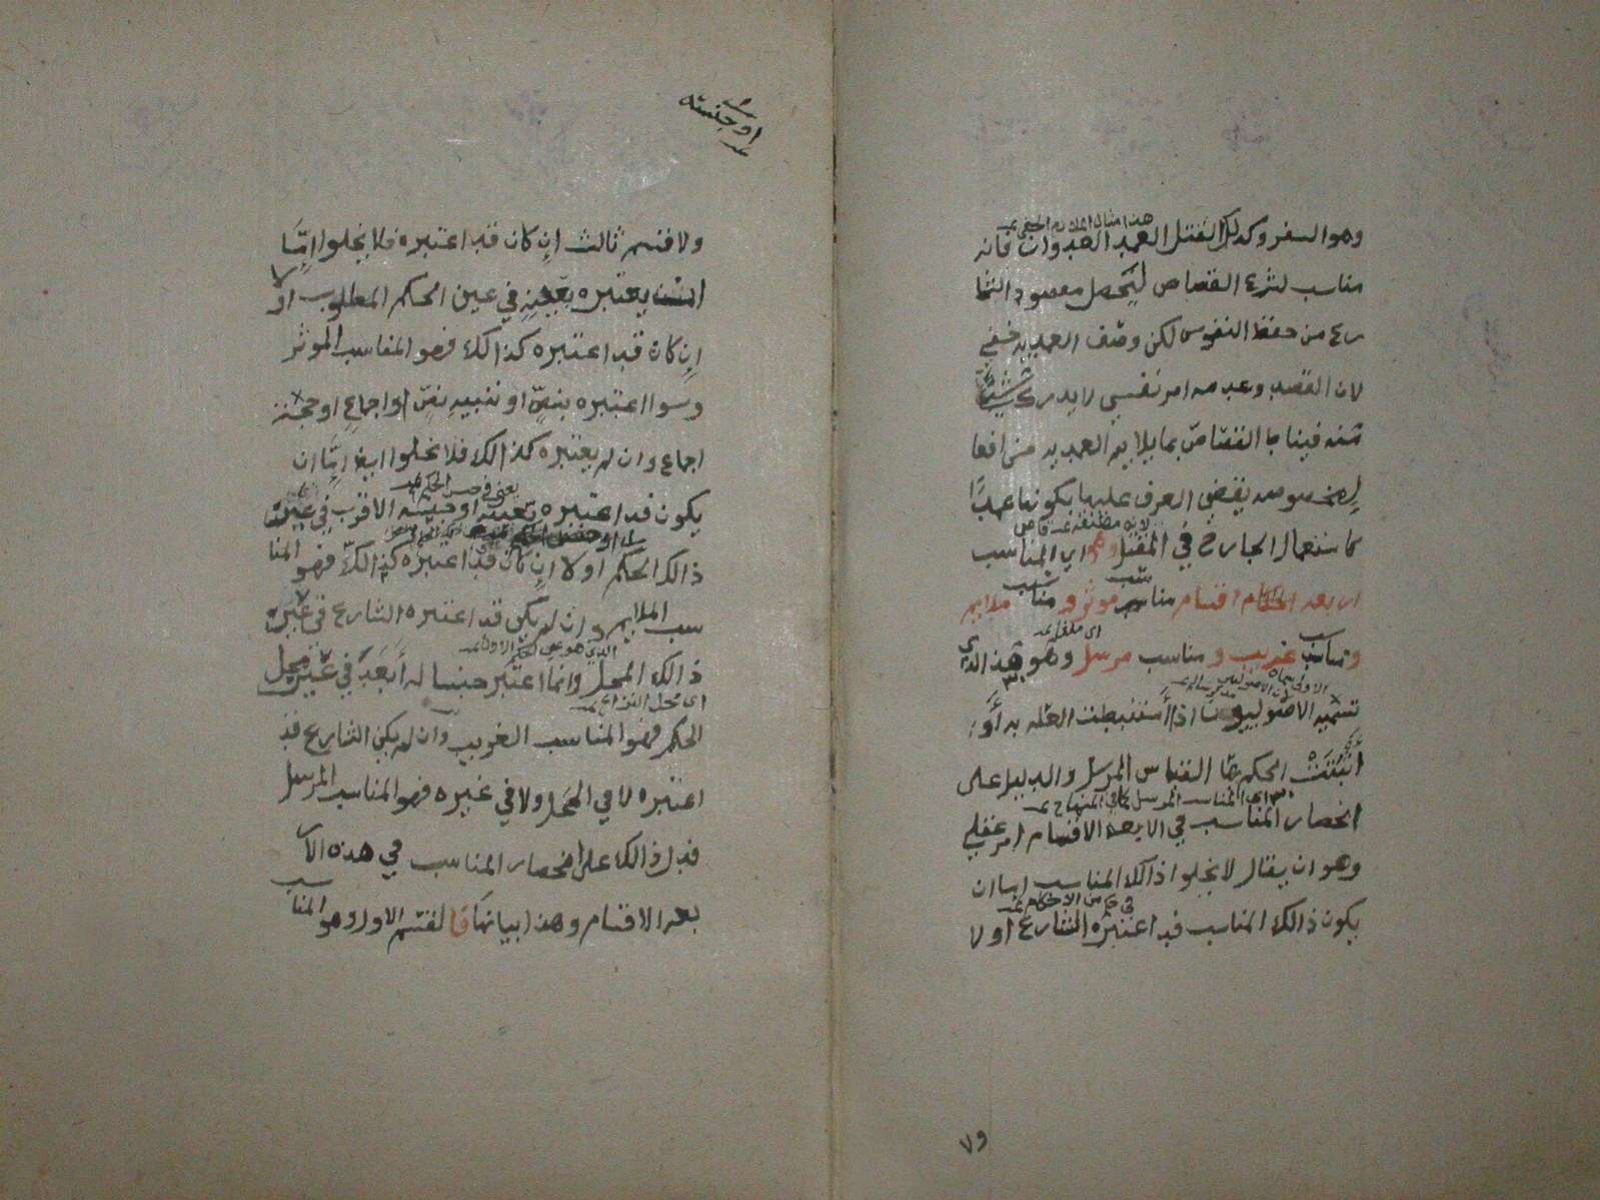 هذا مثال الملايم الخفي
وهو السفر وكذلك القتل العمد العدوان فانه
مناسب لشرع القصاص ليحصل مقصود الشا
رع من حفظ النفوس لكن وصف العمدية خفي
لان القصد وعدمه امر نفسي لا يدرك شيئا
منه فيناط القصاص بما يلازم العمدية من افعا
لٍ مخصوصه يقضي العرف عليها بكونها عمدًا
كاستعمال الجارح في المقتل وهو اي المناسب
اربعه اقسام مناسب موثر ومناسب ملايم
اي ملغا
ومناسب غريب ومناسب مرسل وهو هذا الذي
تسميه الاصوليون اذا استنبطت العله به أو
اثبتت الحكم بها القياس المرسل والدليل على
اي المناسب المرسل كما في المنهاج
انحصار المناسب في الاربعه الاقسام امر عقلي
وهو ان يقال لا يخلوا ذالك المناسب اما ان
في من الاحكام
يكون ذالك المناسب قد اعتبره الشارع اولا
٧٩
او جنسه
ولا قسم ثالث ان كان قد اعتبره فلا يخلوا إمَّا
ان يعتبره بعينه في عين الحكم المطلوب اولا
ان كان قد اعتبره كذالك فهو المناسب الموثر
وسوا اعتبره بنصٍّ او تنبيهِ نصٍّ او اجماعِ او حجة
اجماع وان لم يعتبره كذالك فلا يخلوا ايضا إمَّا ان
يعني في جنس الحكم
يكون قد اعتبره بعينه او جنسه الاقرب في عين
ذالك الحكم اولا ان كان قد اعتبره كذالك فهو المنا
سب الملايم وان لم يكن قد اعتبره الشارع في غير
ذالك المحل وانما اعتبر جنسا له أبعَدَ في غير محل
اي محل النزاع
الحكم فهو المناسب الغريب وان لم يكن الشارع قد
اعتبره لا في المحل ولا في غيره فهو المناسب المرسل
فدل ذالك على انحصار المناسب في هذه الار
بعه الاقسام وهذا بيانها فالقسم الاول وهو المناسب